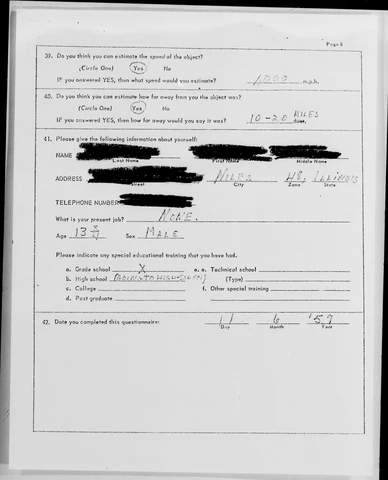 Page 8
39. Do you think you can estimate the speed of the object?
(Circle One) Yes No
IF you answered YES, then what speed would you estimate? 1000 m.p.h.
40. Do you think you can estimate how far away from you the object was?
(Circle One) Yes No
IF you answered YES, then how far away would you say it was? 10-20 MILES feet.
41. Please give the following information about yourself:
NAME
Last Name First Name Middle Name
ADDRESS NILES 48, ILLINOIS
Street City Zone State
TELEPHONE NUMBER
What is your present job? NONE.
Age 13 3/4 Sex MALE
Please indicate any special educational training that you have had.
a. Grade school X e. Technical school
b. High school (GOING TO HIGH SCHOOL) (Type)
c. College f. Other special training
d. Post graduate
42. Date you completed this questionnaire: 11 6 '57
Day Month Year